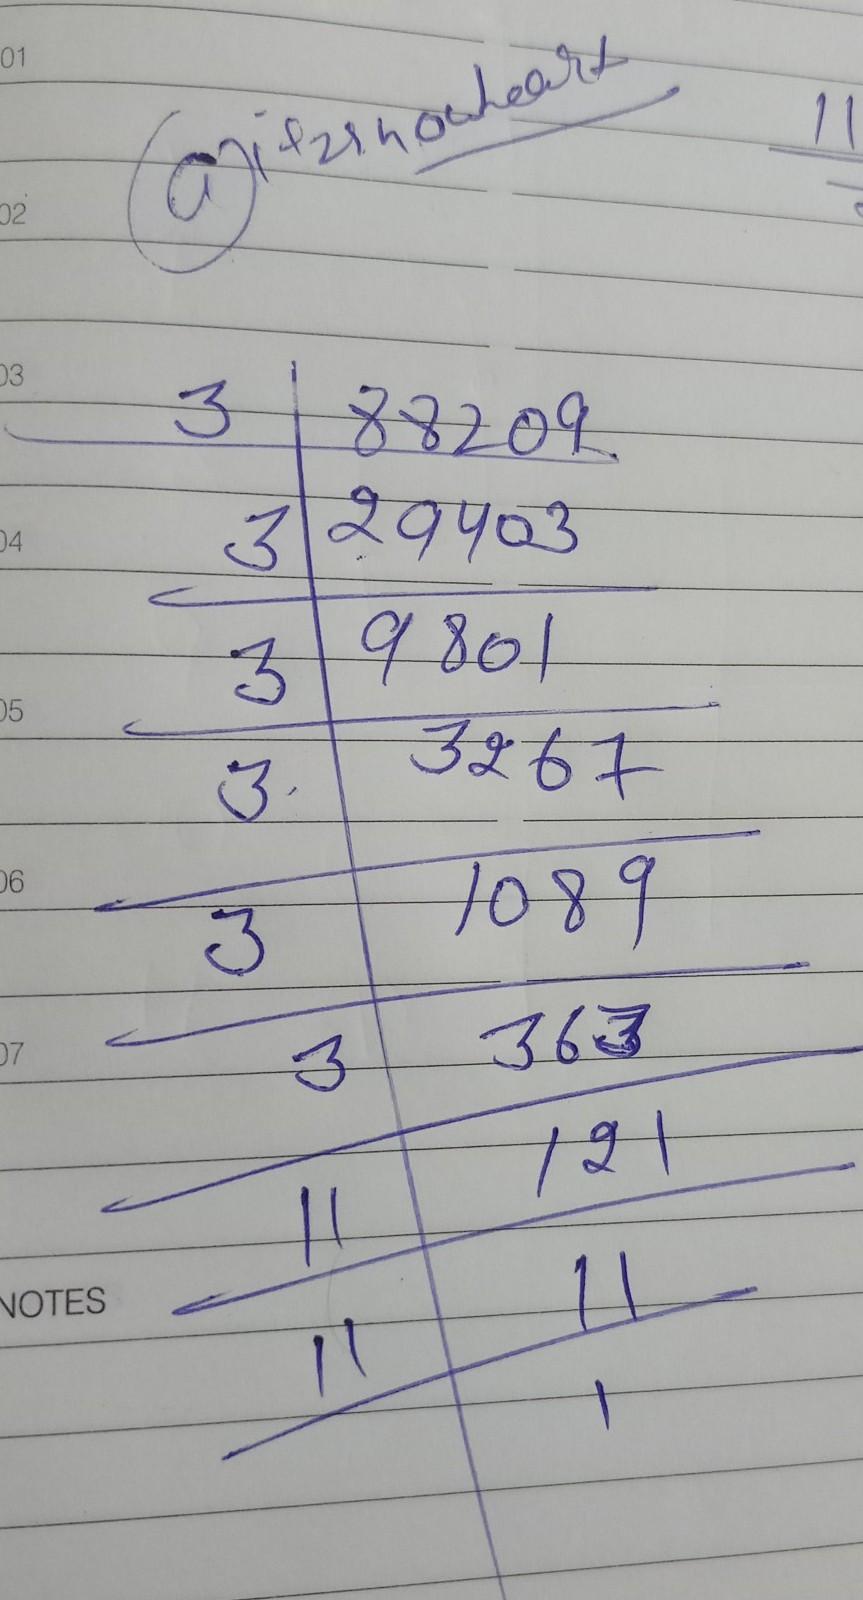 01
11
02
03
3 88209
04
3 29403
3 9801
05
3 3267
06
3 1089
07
3 363
11 121
NOTES
11 11
1